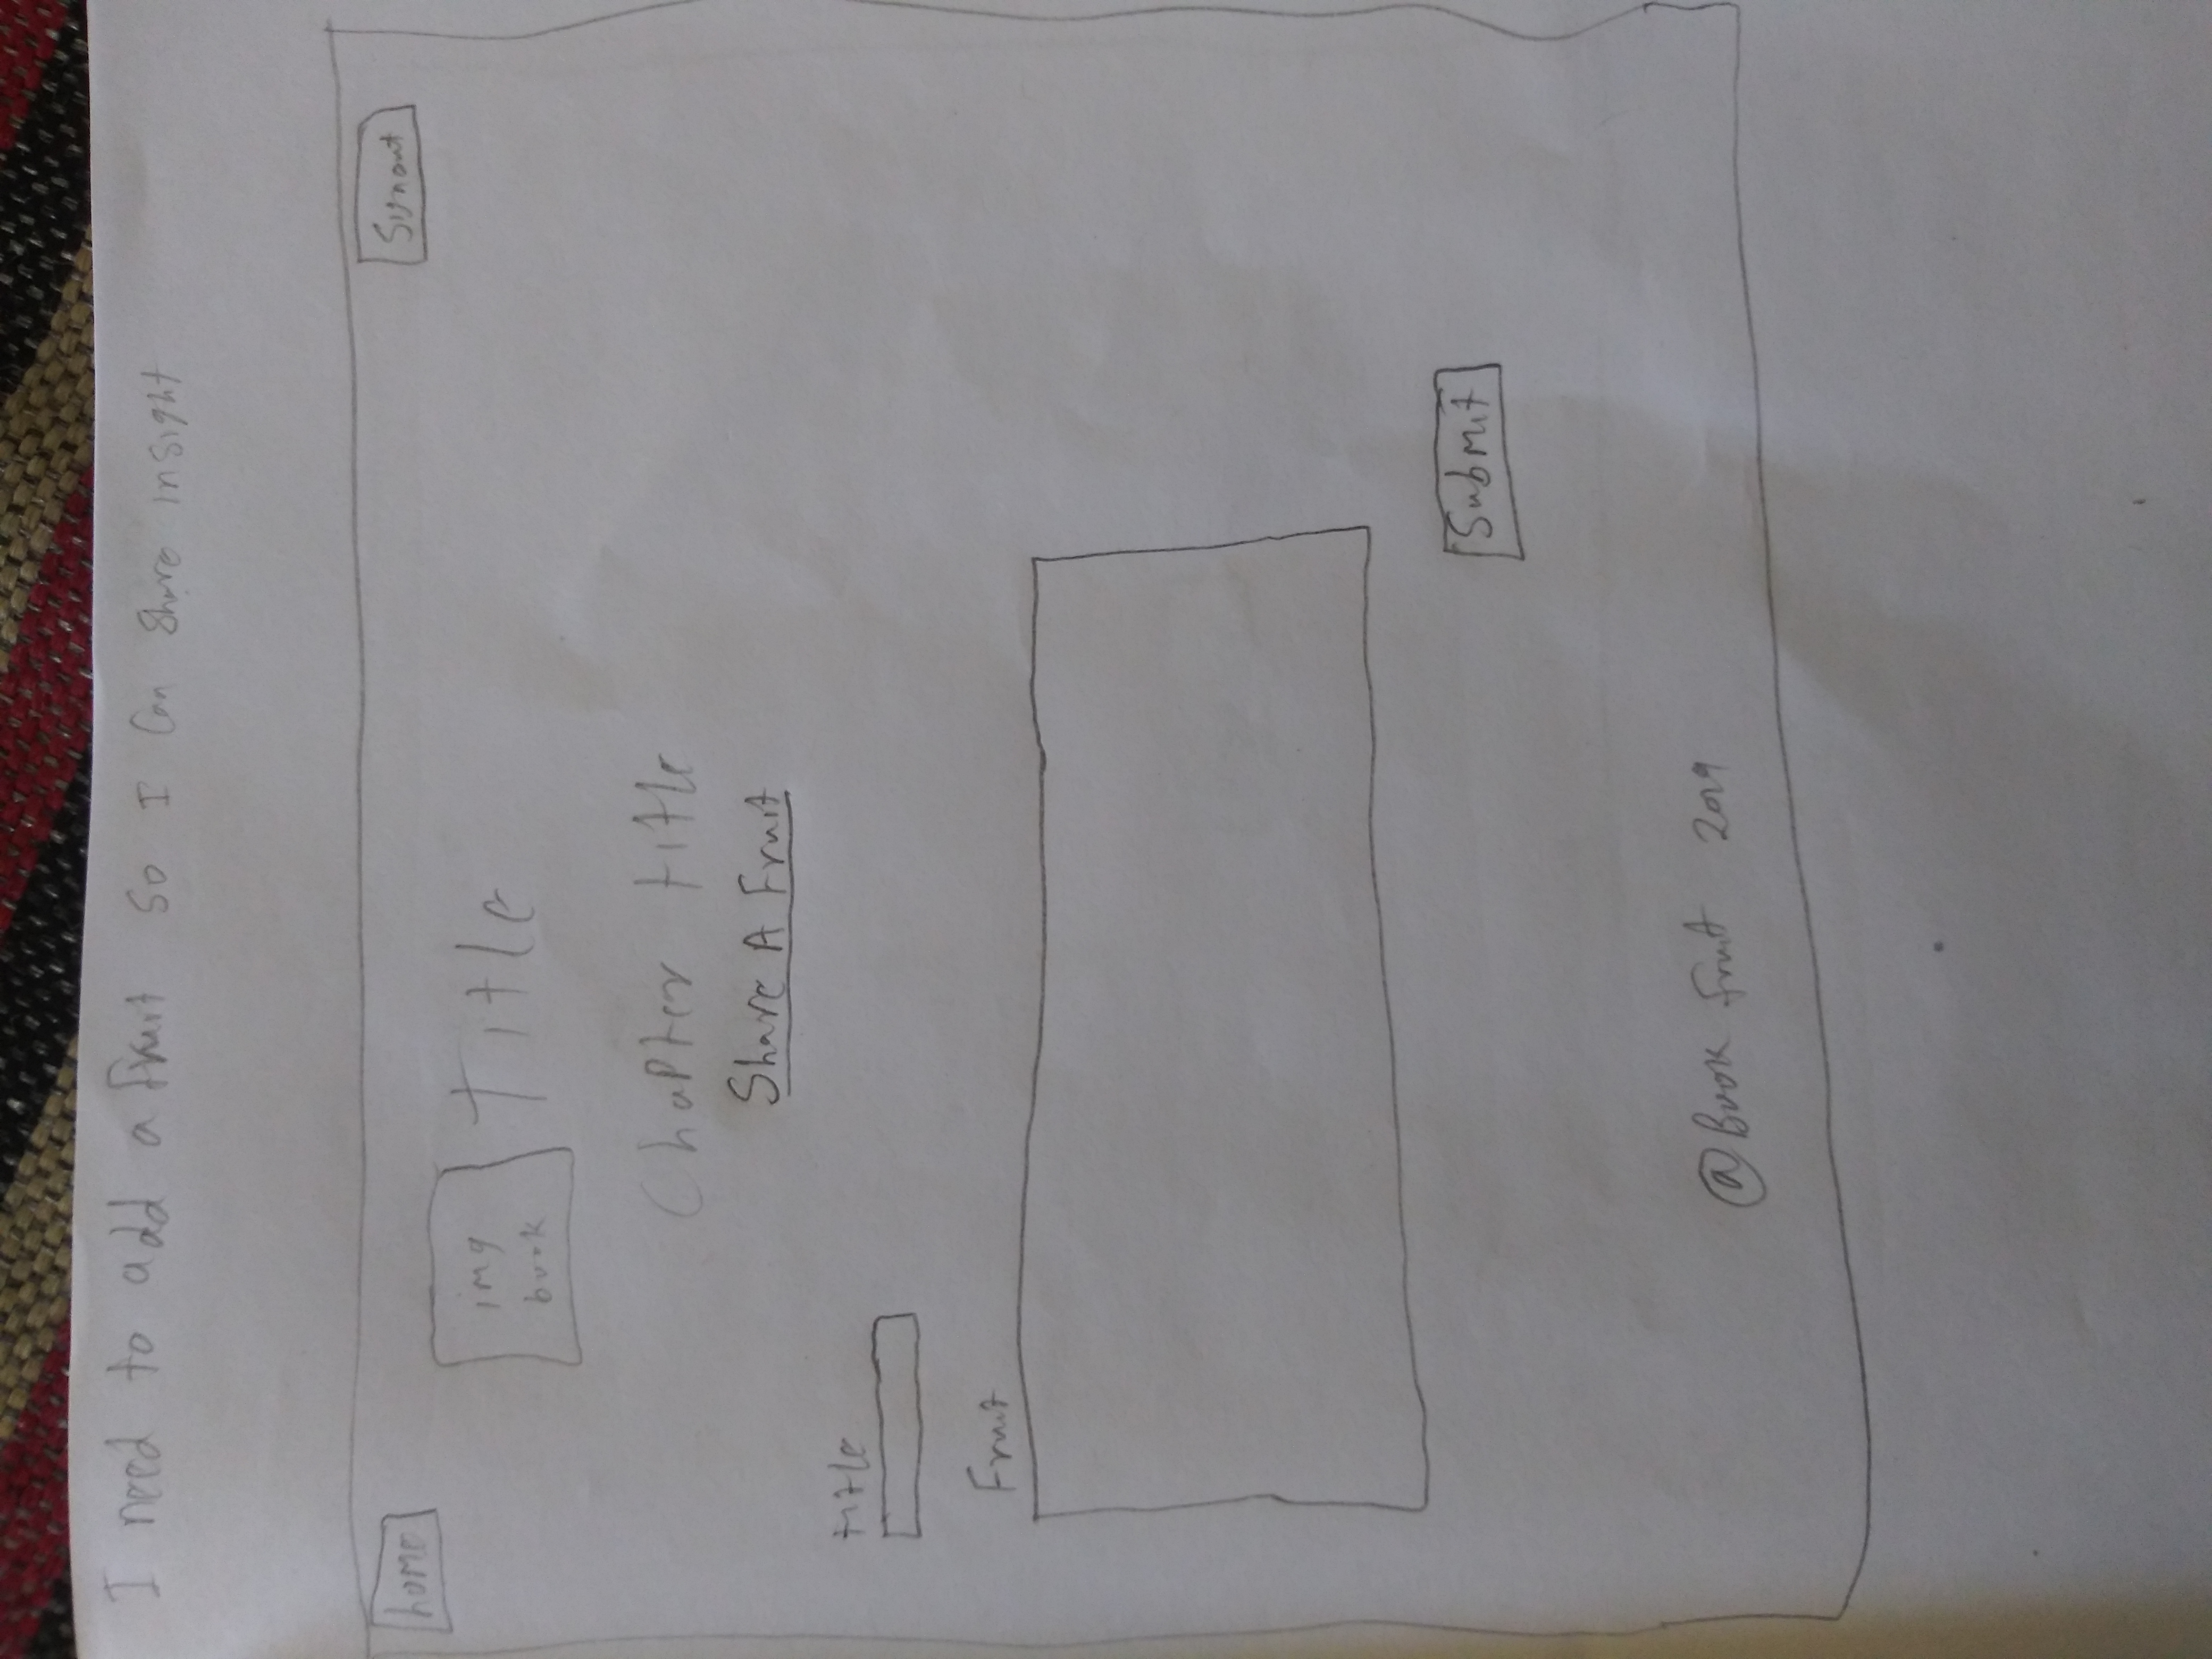 I need to add a fruit so I can share insight
home
Signout
img
book
Title
Chapter title
Share A Fruit
title
Fruit
Submit
@Book fruit 2019